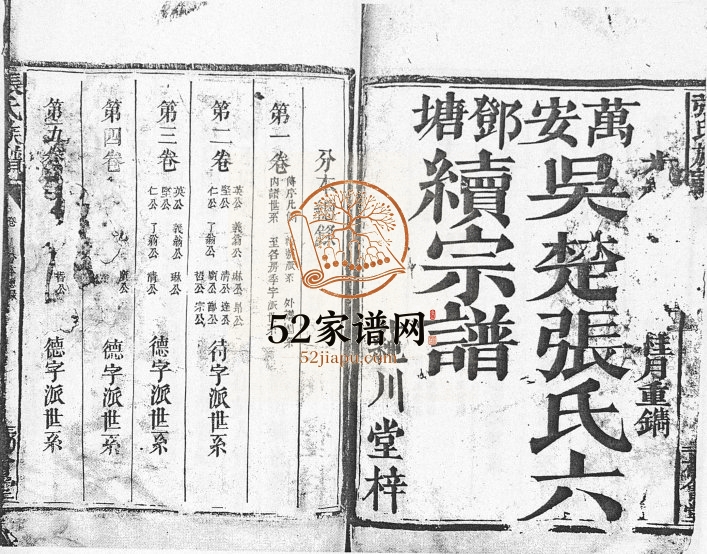 張氏族譜
桂月重鐫
萬安鄧塘
吳楚張氏六
續宗譜
川堂梓
分本總錄
第一卷
第二卷
堅公
仁公
義翁公
了翁公
琳公
清公
廣公
哲公
宗公
待字派世系
第三卷
英公
堅公
仁公
義翁公
了翁公
琳公
清公
德字派世系
第四卷
廣公
德字派世系
第五卷
哲公
德字派世系
張氏族譜
52家谱网
52jiapu.com